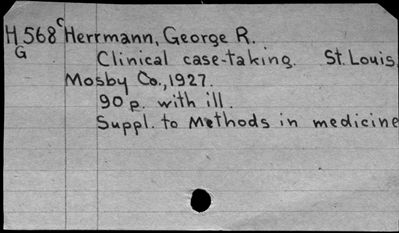 H568c Herrmann, George R.
G Clinical case-taking. St. Louis,
Mosby Co., 1927.
90 p. with ill.
Suppl. to Methods in medicine